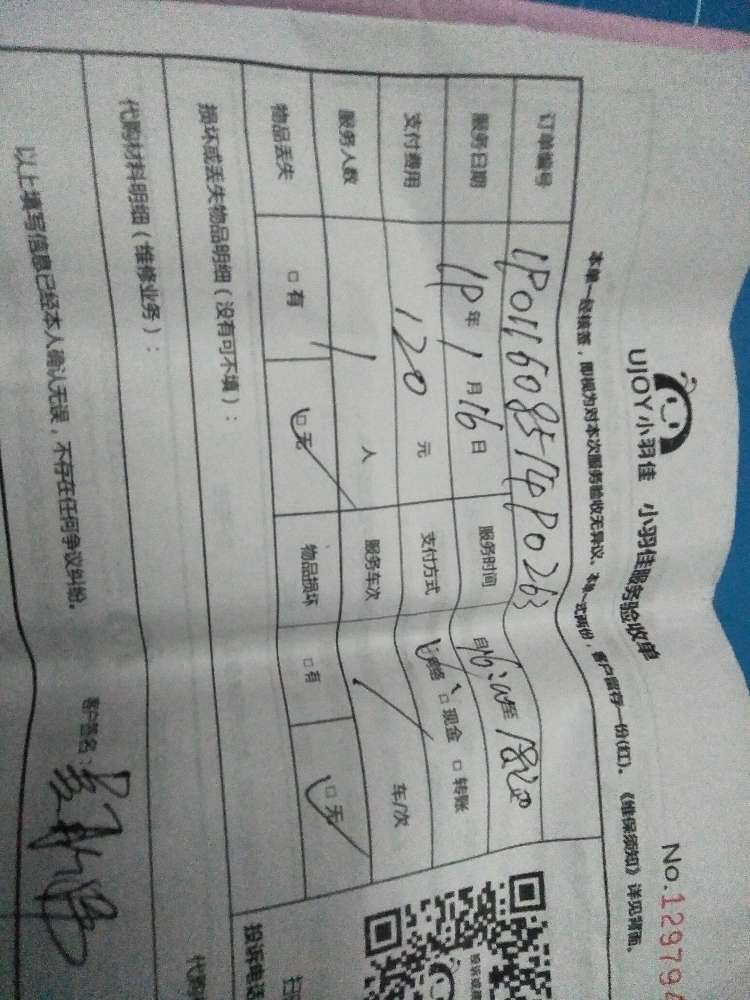 UJOY小羽佳 小羽佳服务验收单
No.12979
本单一经核查，即视为对本次服务验收无异议、本单一式两份，客户留存一份(红)。《维保须知》详见背面。
订单编号
服务日期 19年1月16日 服务时间 自16:00至18:00
支付费用 120元 支付方式 网络 □现金 □转账
服务人数 1人 服务车次 / 车/次
物品丢失 □有 □无 物品损坏 □有 □无
损坏或丢失物品明细（没有可不填）：
代购材料明细（维修业务）：
以上填写信息已经本人确认无误，不存在任何争议纠纷。
客户签名：
投诉电话